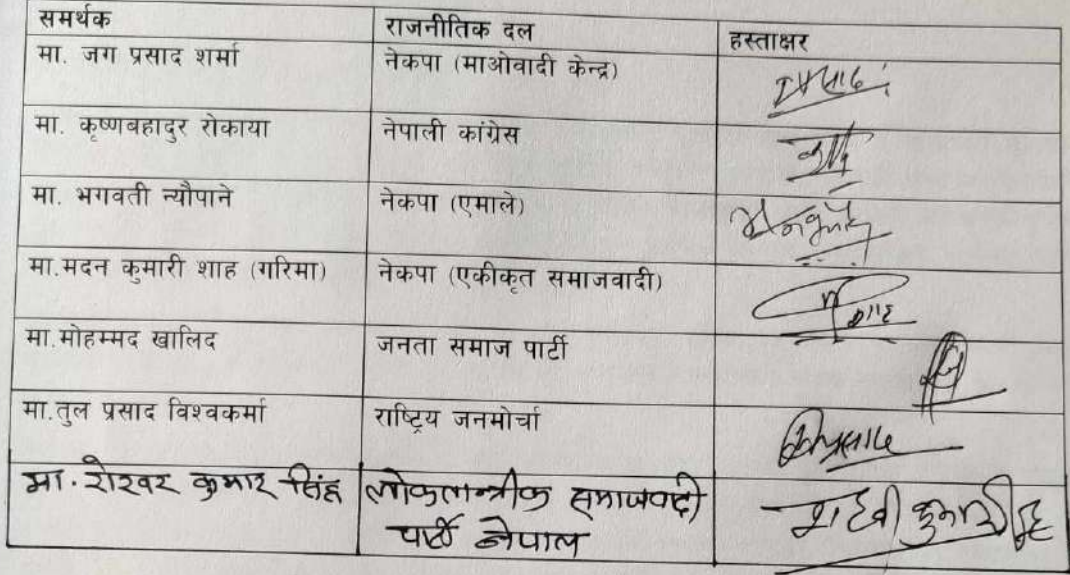 समर्थक राजनीतिक दल हस्ताक्षर
मा. जग प्रसाद शर्मा नेकपा (माओवादी केन्द्र)
मा. कृष्णबहादुर रोकाया नेपाली कांग्रेस
मा. भगवती न्यौपाने नेकपा (एमाले)
मा.मदन कुमारी शाह (गरिमा) नेकपा (एकीकृत समाजवादी)
मा.मोहम्मद खालिद जनता समाज पार्टी
मा.तुल प्रसाद विश्वकर्मा राष्ट्रिय जनमोर्चा
मा. कुमार सिंह लोकतान्त्रीक समाजवादी
पार्टी नेपाल